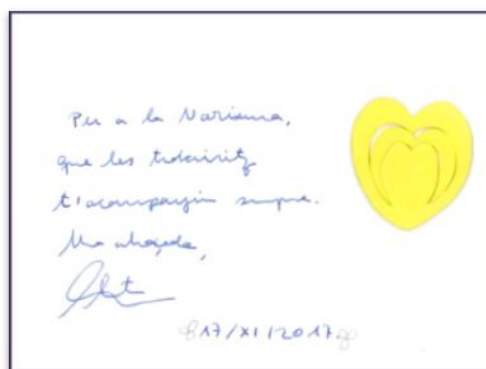 Per a la Marianna,
que les
t'acompanyin sempre.
Una abraçada,
17/XI/2017